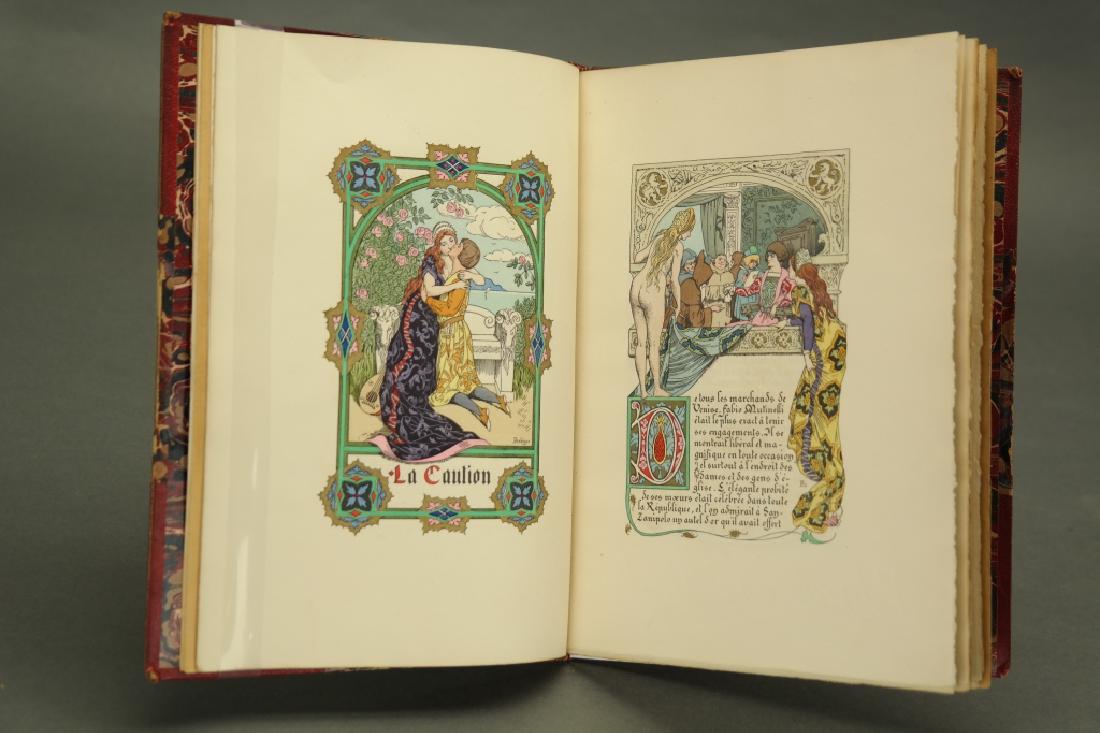 La Caution
De tous les marchands de
Venise, Fabio Mutinelli
était le plus exact à tenir
ses engagements. Il se
montrait libéral et ma-
gnifique en toute occasion
et surtout à l'endroit des
Dames et des gens d'é-
glise. L'élégante probité
de ses mœurs était célébrée dans toute
la République, et l'on admirait à San-
Zanipolo un autel d'or qu'il avait offert